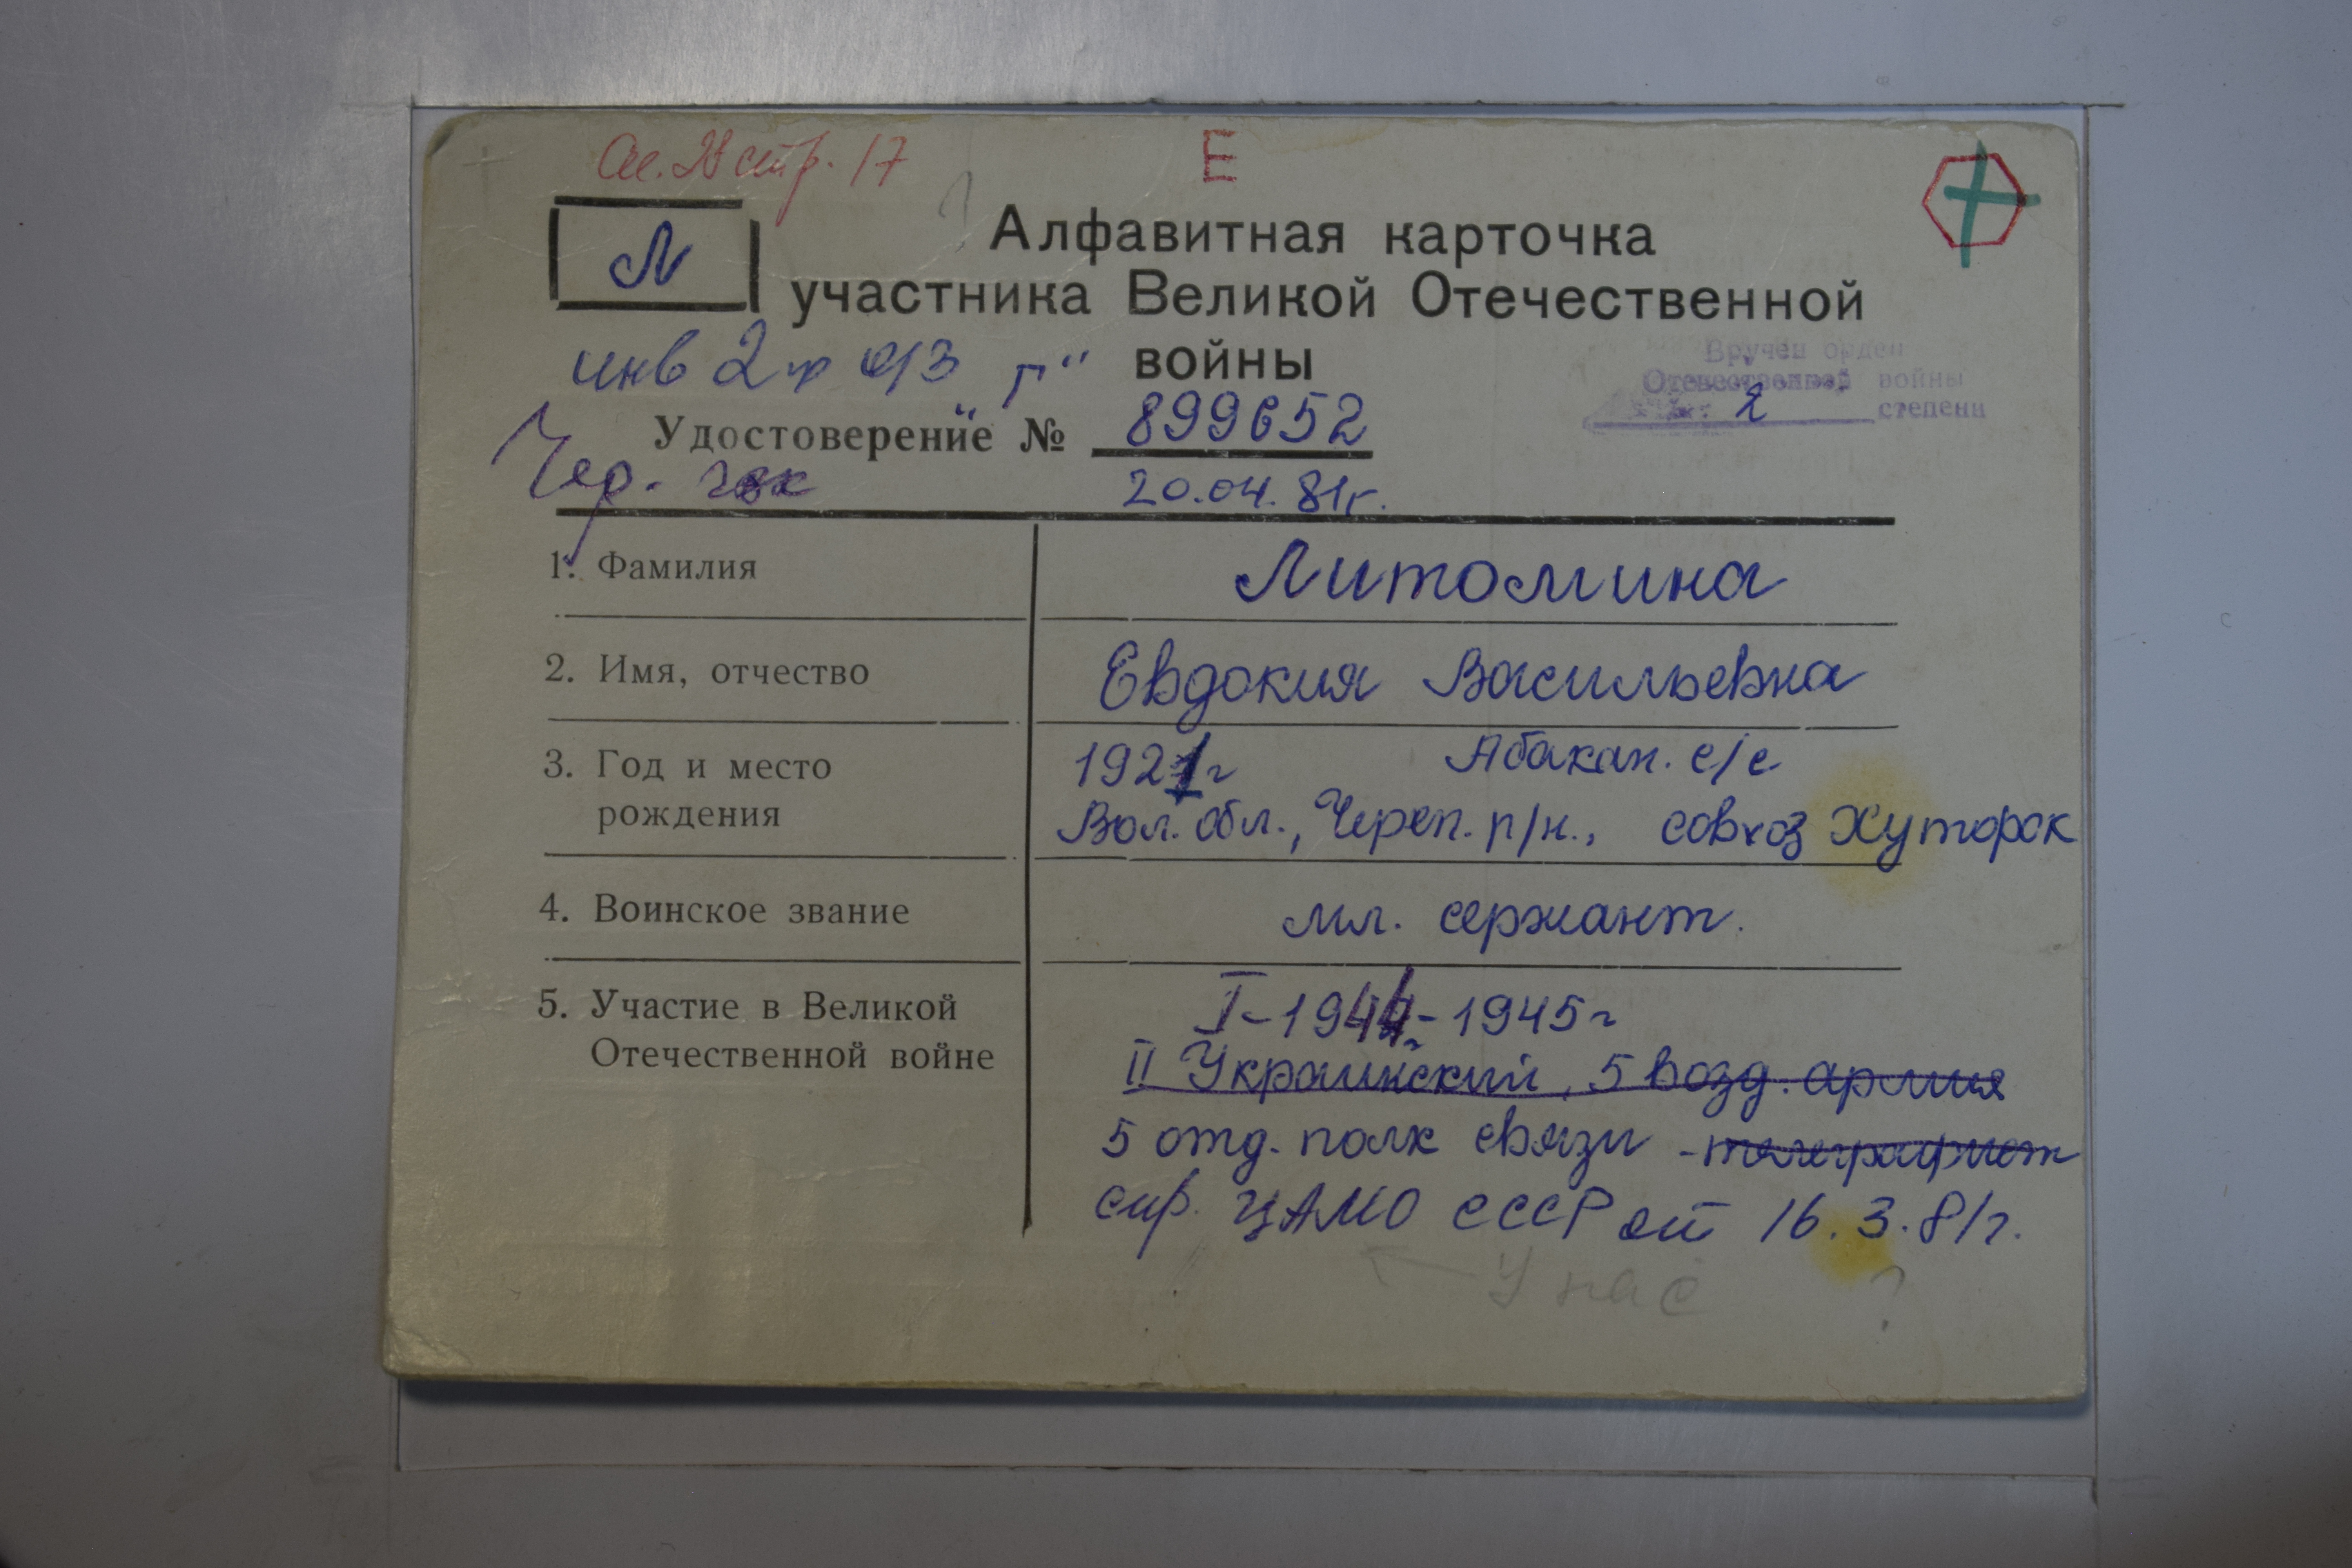 стр. 17
Е
Л
Алфавитная карточка
участника Великой Отечественной
войны
инв 2 гр о/з "Г"
Вручен орден
Отечественной войны
2 степени
Удостоверение № 899652
Чер. гвк
20.04.81г.
1. Фамилия Литомина
2. Имя, отчество Евдокия Васильевна
3. Год и место рождения 1921г Абакан. с/с
Вол. обл., Череп. р/н., совхоз Хуторок
4. Воинское звание мл. сержант.
5. Участие в Великой Отечественной войне I-1944-1945г
II Украинский, 5 возд. армия
5 отд. полк связи - телеграфист
спр. ЦАМО СССР от 16.3.81г.
У нас ?